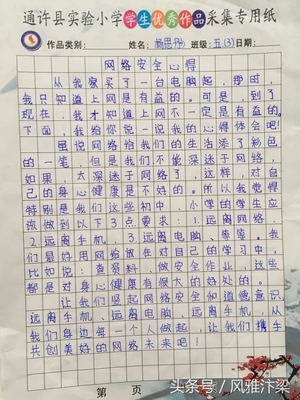 通许县实验小学学生优秀作品采集专用纸
作品类别: 班级:五(3)日期:
网络安全心得
从我家买了一台电脑起,那时,
我只知道上网是有益的。可是,到了
现在,我才知道上网不一定是有益的。
下面,我给你说一说我的心得体会吧!
虽说网络给我们的生活添了彩色
的一笔,但是我们不能深迷于网络,
如果,太深迷于网络了,这样,对自
己的身心健康是不好的。所以我觉得
特别是我们这些初中、小学的学生应
该做到以下3点要求:1.远离网络、
2.远离手机、3.远离电脑、等等。我
们最好把网络放在对自己的学习中,
比如说:查资料、做安全作业,这些
都是对身心健康有很大的好处的。
让我们竖起网络安全和道德意识
远离手机、远离电脑、远离网络,从
我们身边每一个人做起,让我们携手
共创美好的网络未来吧!
第 页
头条号/风雅汴梁